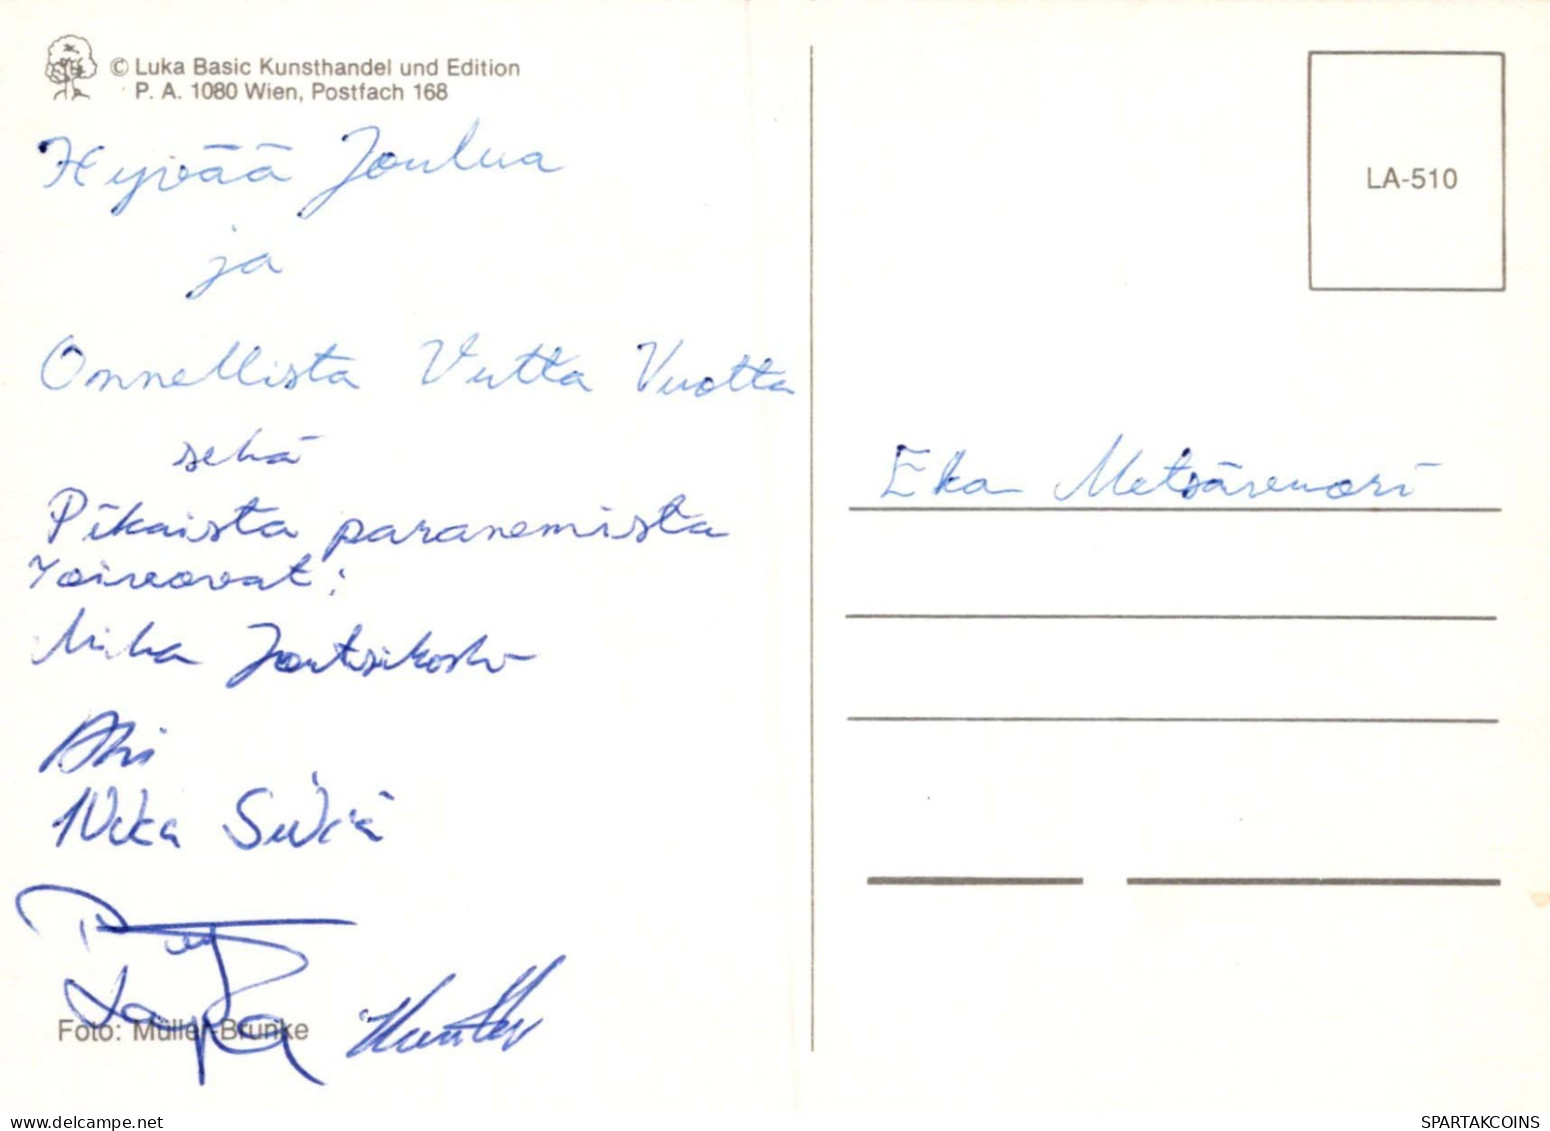 © Luka Basic Kunsthandel und Edition
P. A. 1080 Wien, Postfach 168
Hyvää Joulua
ja
Onnellista Uutta Vuotta
sekä
Pikaista paranemista
toivovat:
Mika Joutsikoski
Aki
Mika
Foto: Müller-Brunke
LA-510
Eka Metsärenori
SPARTAKCOINS